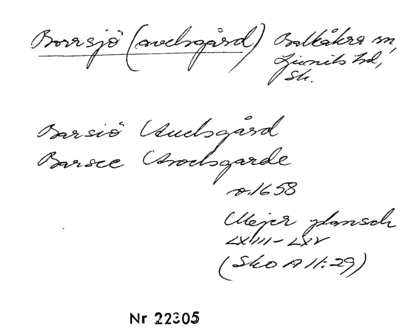 Borrsjö (avelsgård) Balkåkra sn,
Ljunits hd,
Sk.
Barsiö Auelsgård
Barsee Avelsgarde
o. 1658
Mejer plansch
LXIII-LXV
(Sko A II:29)
Nr 22305